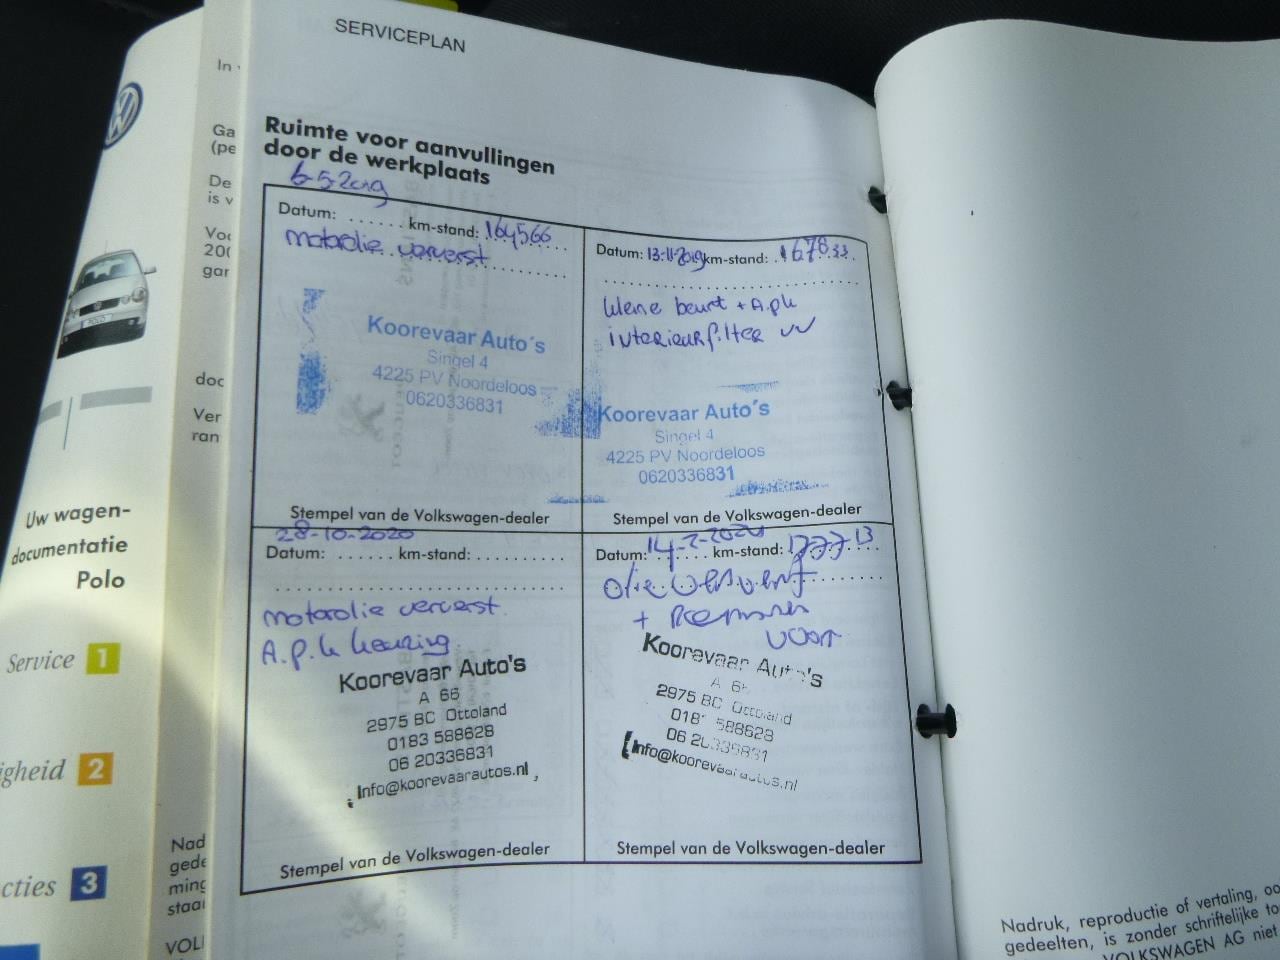 SERVICEPLAN
Ruimte voor aanvullingen
door de werkplaats
6-5-2019
Datum: ...... km-stand: 164566
motorolie ververst
Koorevaar Auto's
Singel 4
4225 PV Noordeloos
0620336831
Stempel van de Volkswagen-dealer
Datum: 13-11-2019 km-stand: 167833
kleine beurt + A.p.k
interieurfilter vv
Koorevaar Auto's
Singel 4
4225 PV Noordeloos
0620336831
Stempel van de Volkswagen-dealer
28-10-2020
Datum: ...... km-stand: .........
motorolie ververst
A.p.k keuring
Koorevaar Auto's
A 66
2975 BC Ottoland
0183 588628
06 20336831
Info@koorevaarautos.nl
Stempel van de Volkswagen-dealer
Datum: 14-2-2021 km-stand: 177713
olie ververst
+ Remmen
voor
Koorevaar Auto's
A 66
2975 BC Ottoland
0183 588628
06 20336831
Info@koorevaarautos.nl
Stempel van de Volkswagen-dealer
Uw wagen-
documentatie
Polo
Service 1
2
3
Nadruk, reproductie of vertaling,
gedeelten, is zonder schriftelijke
VOLKSWAGEN AG niet